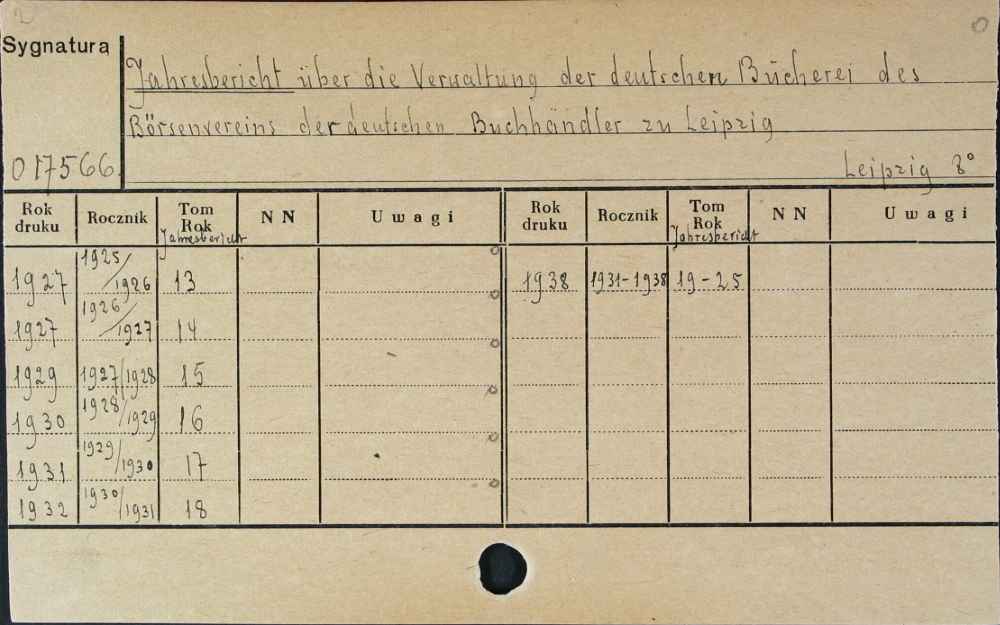 Sygnatura
Jahresbericht über die Verwaltung der deutschen Bücherei des
Börsenvereins der deutschen Buchhändler zu Leipzig
017566.
Leipzig 8°
Rok druku Rocznik Tom Rok Jahresbericht NN Uwagi Rok druku Rocznik Tom Rok Jahresbericht NN Uwagi
1927 1925/1926 13 1938 1931-1938 19-25
1927 1926/1927 14
1929 1927/1928 15
1930 1928/1929 16
1931 1929/1930 17
1932 1930/1931 18